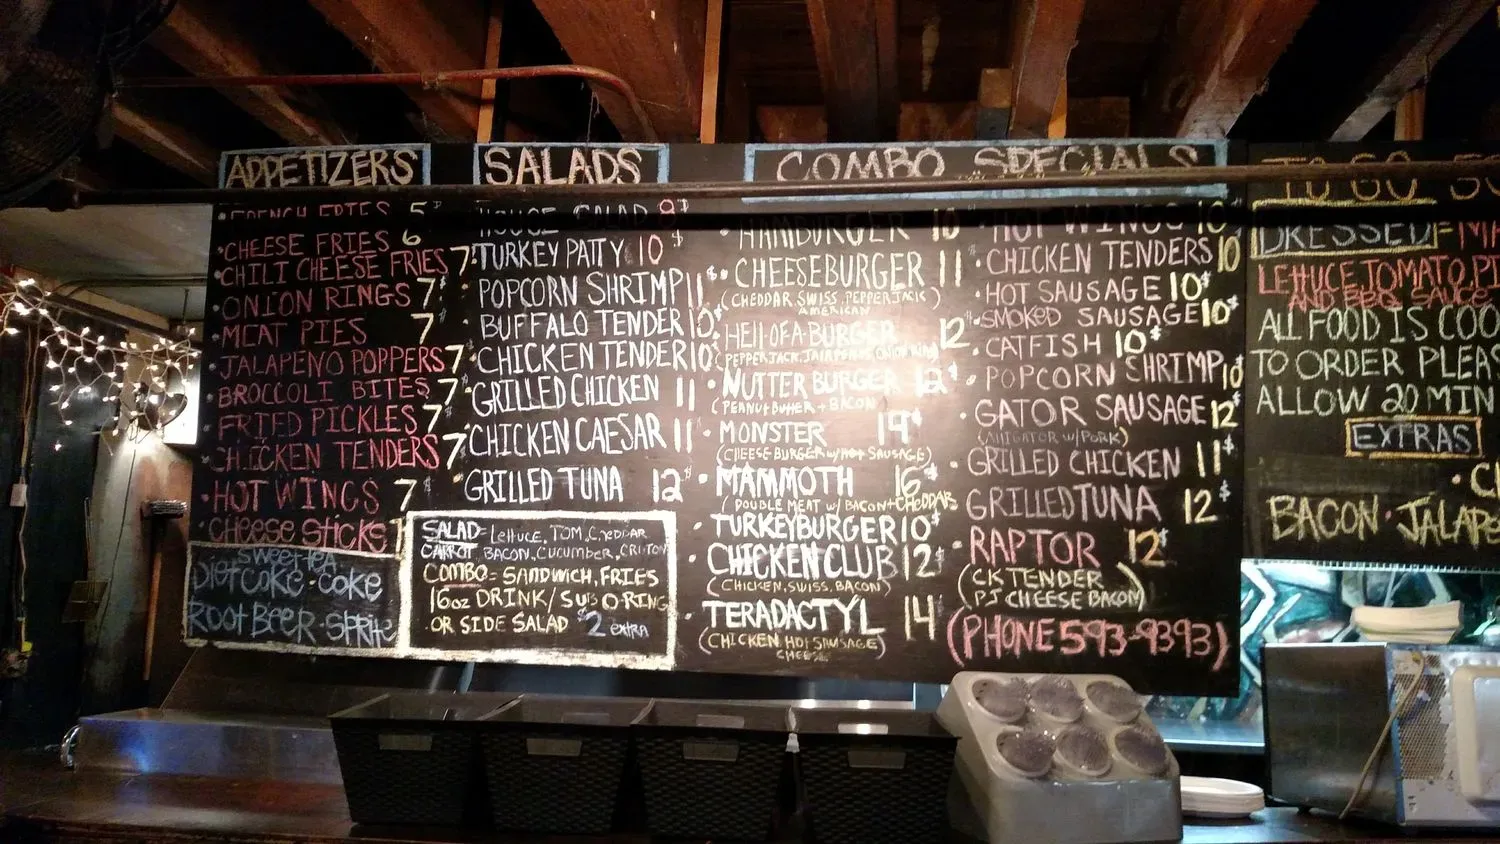 APPETIZERS
FRENCH FRIES 5$
CHEESE FRIES 6
CHILI CHEESE FRIES 7$
ONION RINGS 7$
MEAT PIES 7
JALAPENO POPPERS 7
BROCCOLI BITES 7$
FRIED PICKLES 7$
CHICKEN TENDERS 7$
HOT WINGS 7$
CHEESE STICKS
SWEET TEA
DIET COKE · COKE
ROOT BEER · SPRITE
SALADS
HOUSE SALAD 8$
TURKEY PATTY 10$
POPCORN SHRIMP 11$
BUFFALO TENDER 10$
CHICKEN TENDER 10$
GRILLED CHICKEN 11
CHICKEN CAESAR 11
GRILLED TUNA 12$
SALAD = LETTUCE, TOM, CHEDDAR
CARROT, BACON, CUCUMBER, CRUTON
COMBO = SANDWICH, FRIES
16oz DRINK / SUB O-RING
OR SIDE SALAD $2 EXTRA
COMBO SPECIALS
HAMBURGER 10$
CHEESEBURGER 11
(CHEDDAR, SWISS, PEPPERJACK)
AMERICAN
HELL-OF-A-BURGER 12$
(PEPPERJACK, JALAPENOS, ONION RING)
NUTTER BURGER 12$
(PEANUT BUTTER + BACON
MONSTER 14$
(CHEESEBURGER w/ HOT SAUSAGE)
MAMMOTH 16$
(DOUBLE MEAT w/ BACON + CHEDDAR
TURKEYBURGER 10$
CHICKEN CLUB 12$
(CHICKEN, SWISS, BACON)
TERADACTYL 14
(CHICKEN, HOT SAUSAGE)
CHEESE
HOT WINGS 10$
CHICKEN TENDERS 10
HOT SAUSAGE 10$
SMOKED SAUSAGE 10$
CATFISH 10$
POPCORN SHRIMP 10$
GATOR SAUSAGE 12$
(ALLIGATOR w/ PORK)
GRILLED CHICKEN 11$
GRILLED TUNA 12$
RAPTOR 12$
(CK TENDER
PJ CHEESE BACON)
(PHONE 593-9393)
TO GO
DRESSED =
LETTUCE, TOMATO,
AND BBQ SAUCE
ALL FOOD IS
TO ORDER
ALLOW 20 MIN
EXTRAS
BACON ·